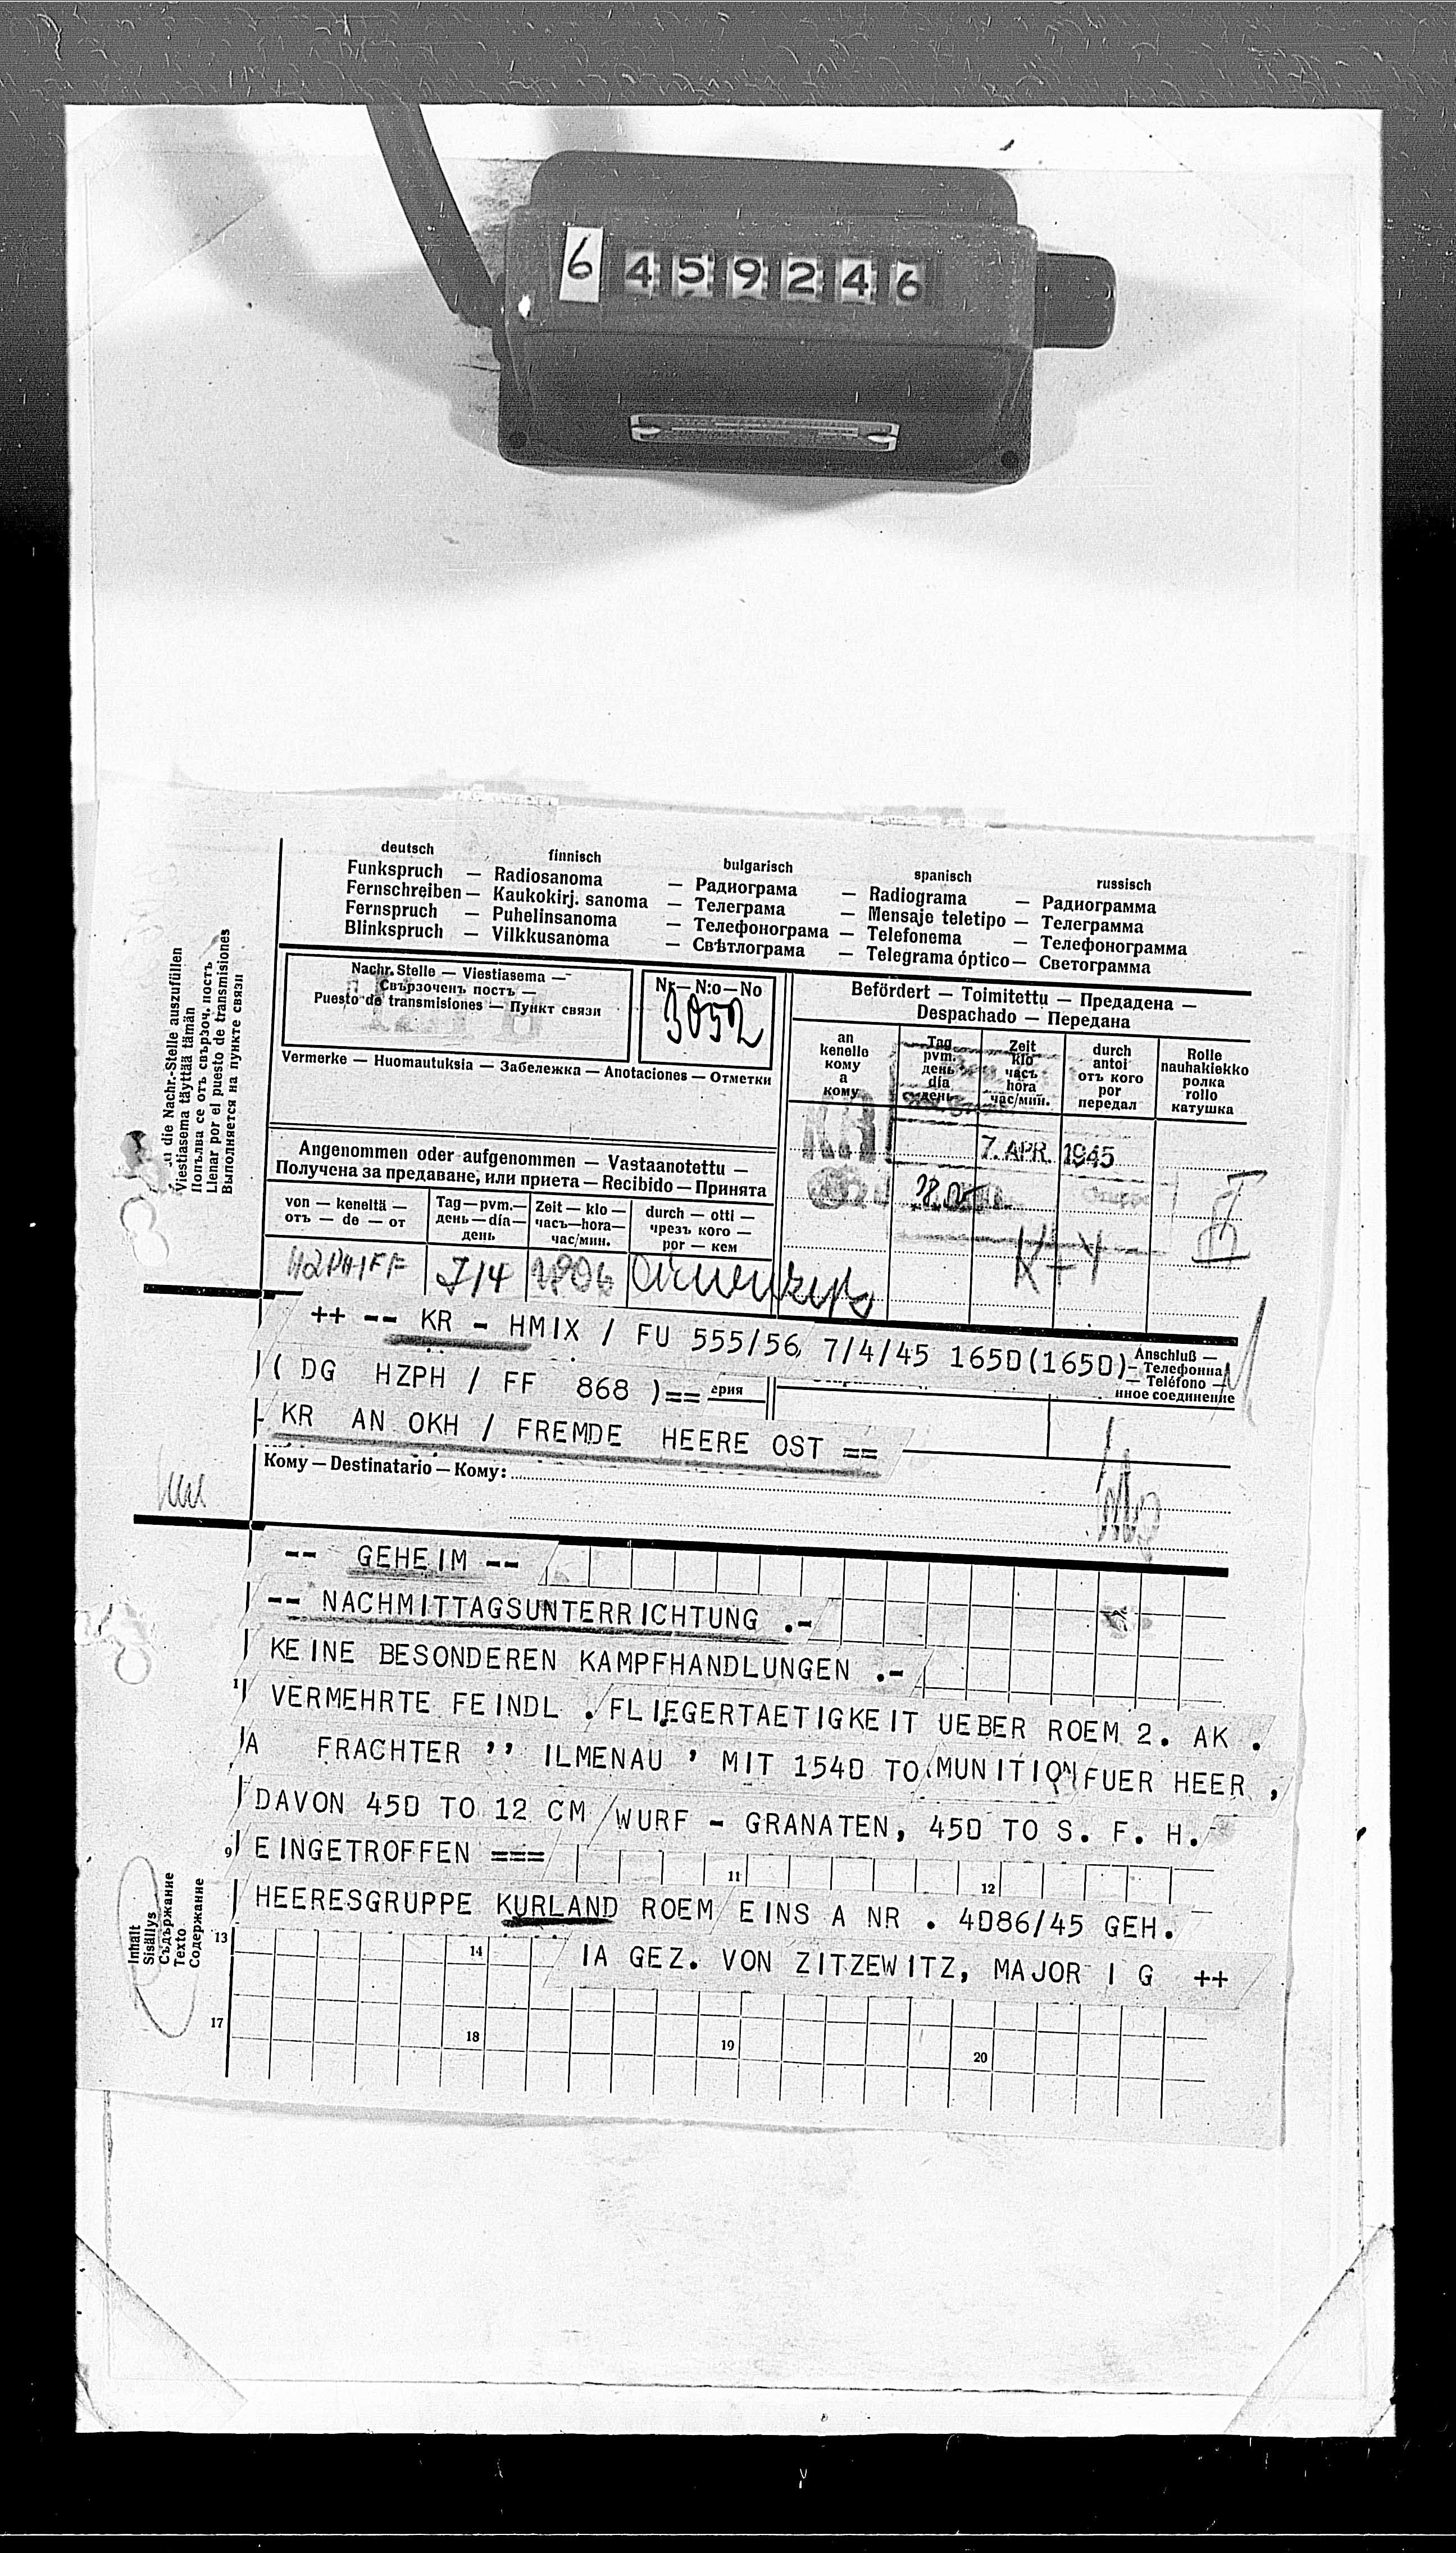 6 459246
deutsch finnisch bulgarisch spanisch russisch
Funkspruch — Radiosanoma — Радиограма — Radiograma — Радиограмма
Fernschreiben — Kaukokirj. sanoma — Телеграма — Mensaje teletipo — Телеграмма
Fernspruch — Puhelinsanoma — Телефонограма — Telefonema — Телефонограмма
Blinkspruch — Vilkkusanoma — Свѣтлограма — Telegrama óptico — Светограмма
die Nachr.-Stelle auszufüllen
Viestiasema täyttää tämän
Попълва се отъ свързоч. постъ
Llenar por el puesto de transmisiones
Выполняется на пункте связи
Nachr. Stelle — Viestiasema —
Свързоченъ постъ —
Puesto de transmisiones — Пункт связи
Nr — N:o — No
3052
Vermerke — Huomautuksia — Забележка — Anotaciones — Отметки
Befördert — Toimitettu — Предадена —
Despachado — Передана
an
kenelle
кому
a
кому
Tag
pvm.
день
día
день
Zeit
klo
часъ
hora
час/мин.
durch
antoi
отъ кого
por
передал
Rolle
nauhakiekko
ролка
rollo
катушка
7. APR. 1945
II
K+Y
Angenommen oder aufgenommen — Vastaanotettu —
Получена за предаване, или приета — Recibido — Принята
von — keneltä —
отъ — de — от
Tag — pvm. —
день — día —
день
Zeit — klo —
часъ — hora —
час/мин.
durch — otti —
чрезъ кого —
por — кем
HZPH/FF 7/4
++ -- KR - HMIX / FU 555/56 7/4/45 1650(1650)-
Anschluß —
Телефонна
Teléfono —
нное соединение
( DG HZPH / FF 868 )==
ерия
KR AN OKH / FREMDE HEERE OST ==
Кому — Destinatario — Кому:
-- GEHEIM --
-- NACHMITTAGSUNTERRICHTUNG .-
KEINE BESONDEREN KAMPFHANDLUNGEN .-
VERMEHRTE FEINDL . FLIEGERTAETIGKEIT UEBER ROEM 2. AK .
A FRACHTER '' ILMENAU ' MIT 1540 TO MUNITION FUER HEER ,
DAVON 450 TO 12 CM WURF - GRANATEN, 450 TO S. F. H.-
9 EINGETROFFEN ===
11 12
HEERESGRUPPE KURLAND ROEM EINS A NR . 4086/45 GEH.
13 14
IA GEZ. VON ZITZEWITZ, MAJOR I G ++
17 18 19 20
Inhalt
Sisällys
Съдържание
Texto
Содержание